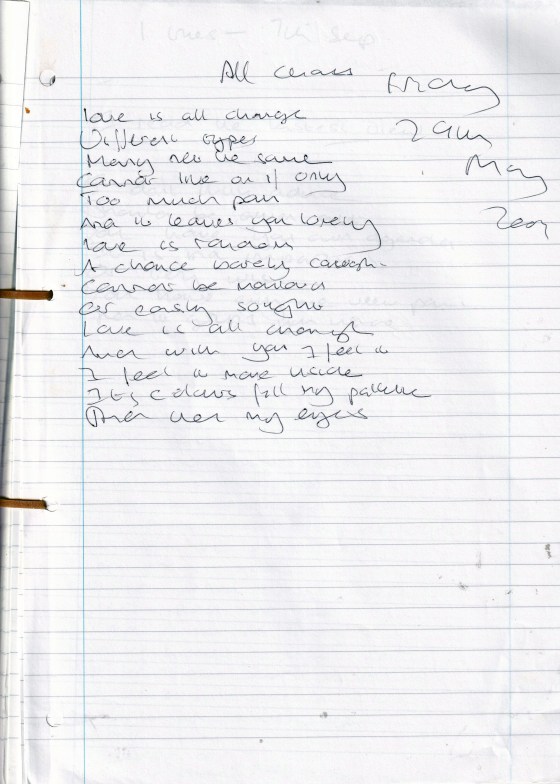 All
Friday
29th
May
2009
Love is all change
Different types
Many not the same
Cannot live on if only
Too much pain
And it leaves you lonely
Love is random
A chance barely caught.
Cannot be
or easily sought
Love is all change
And with you I feel it
I feel it move inside
Its colours fill my palette
And wet my eyes